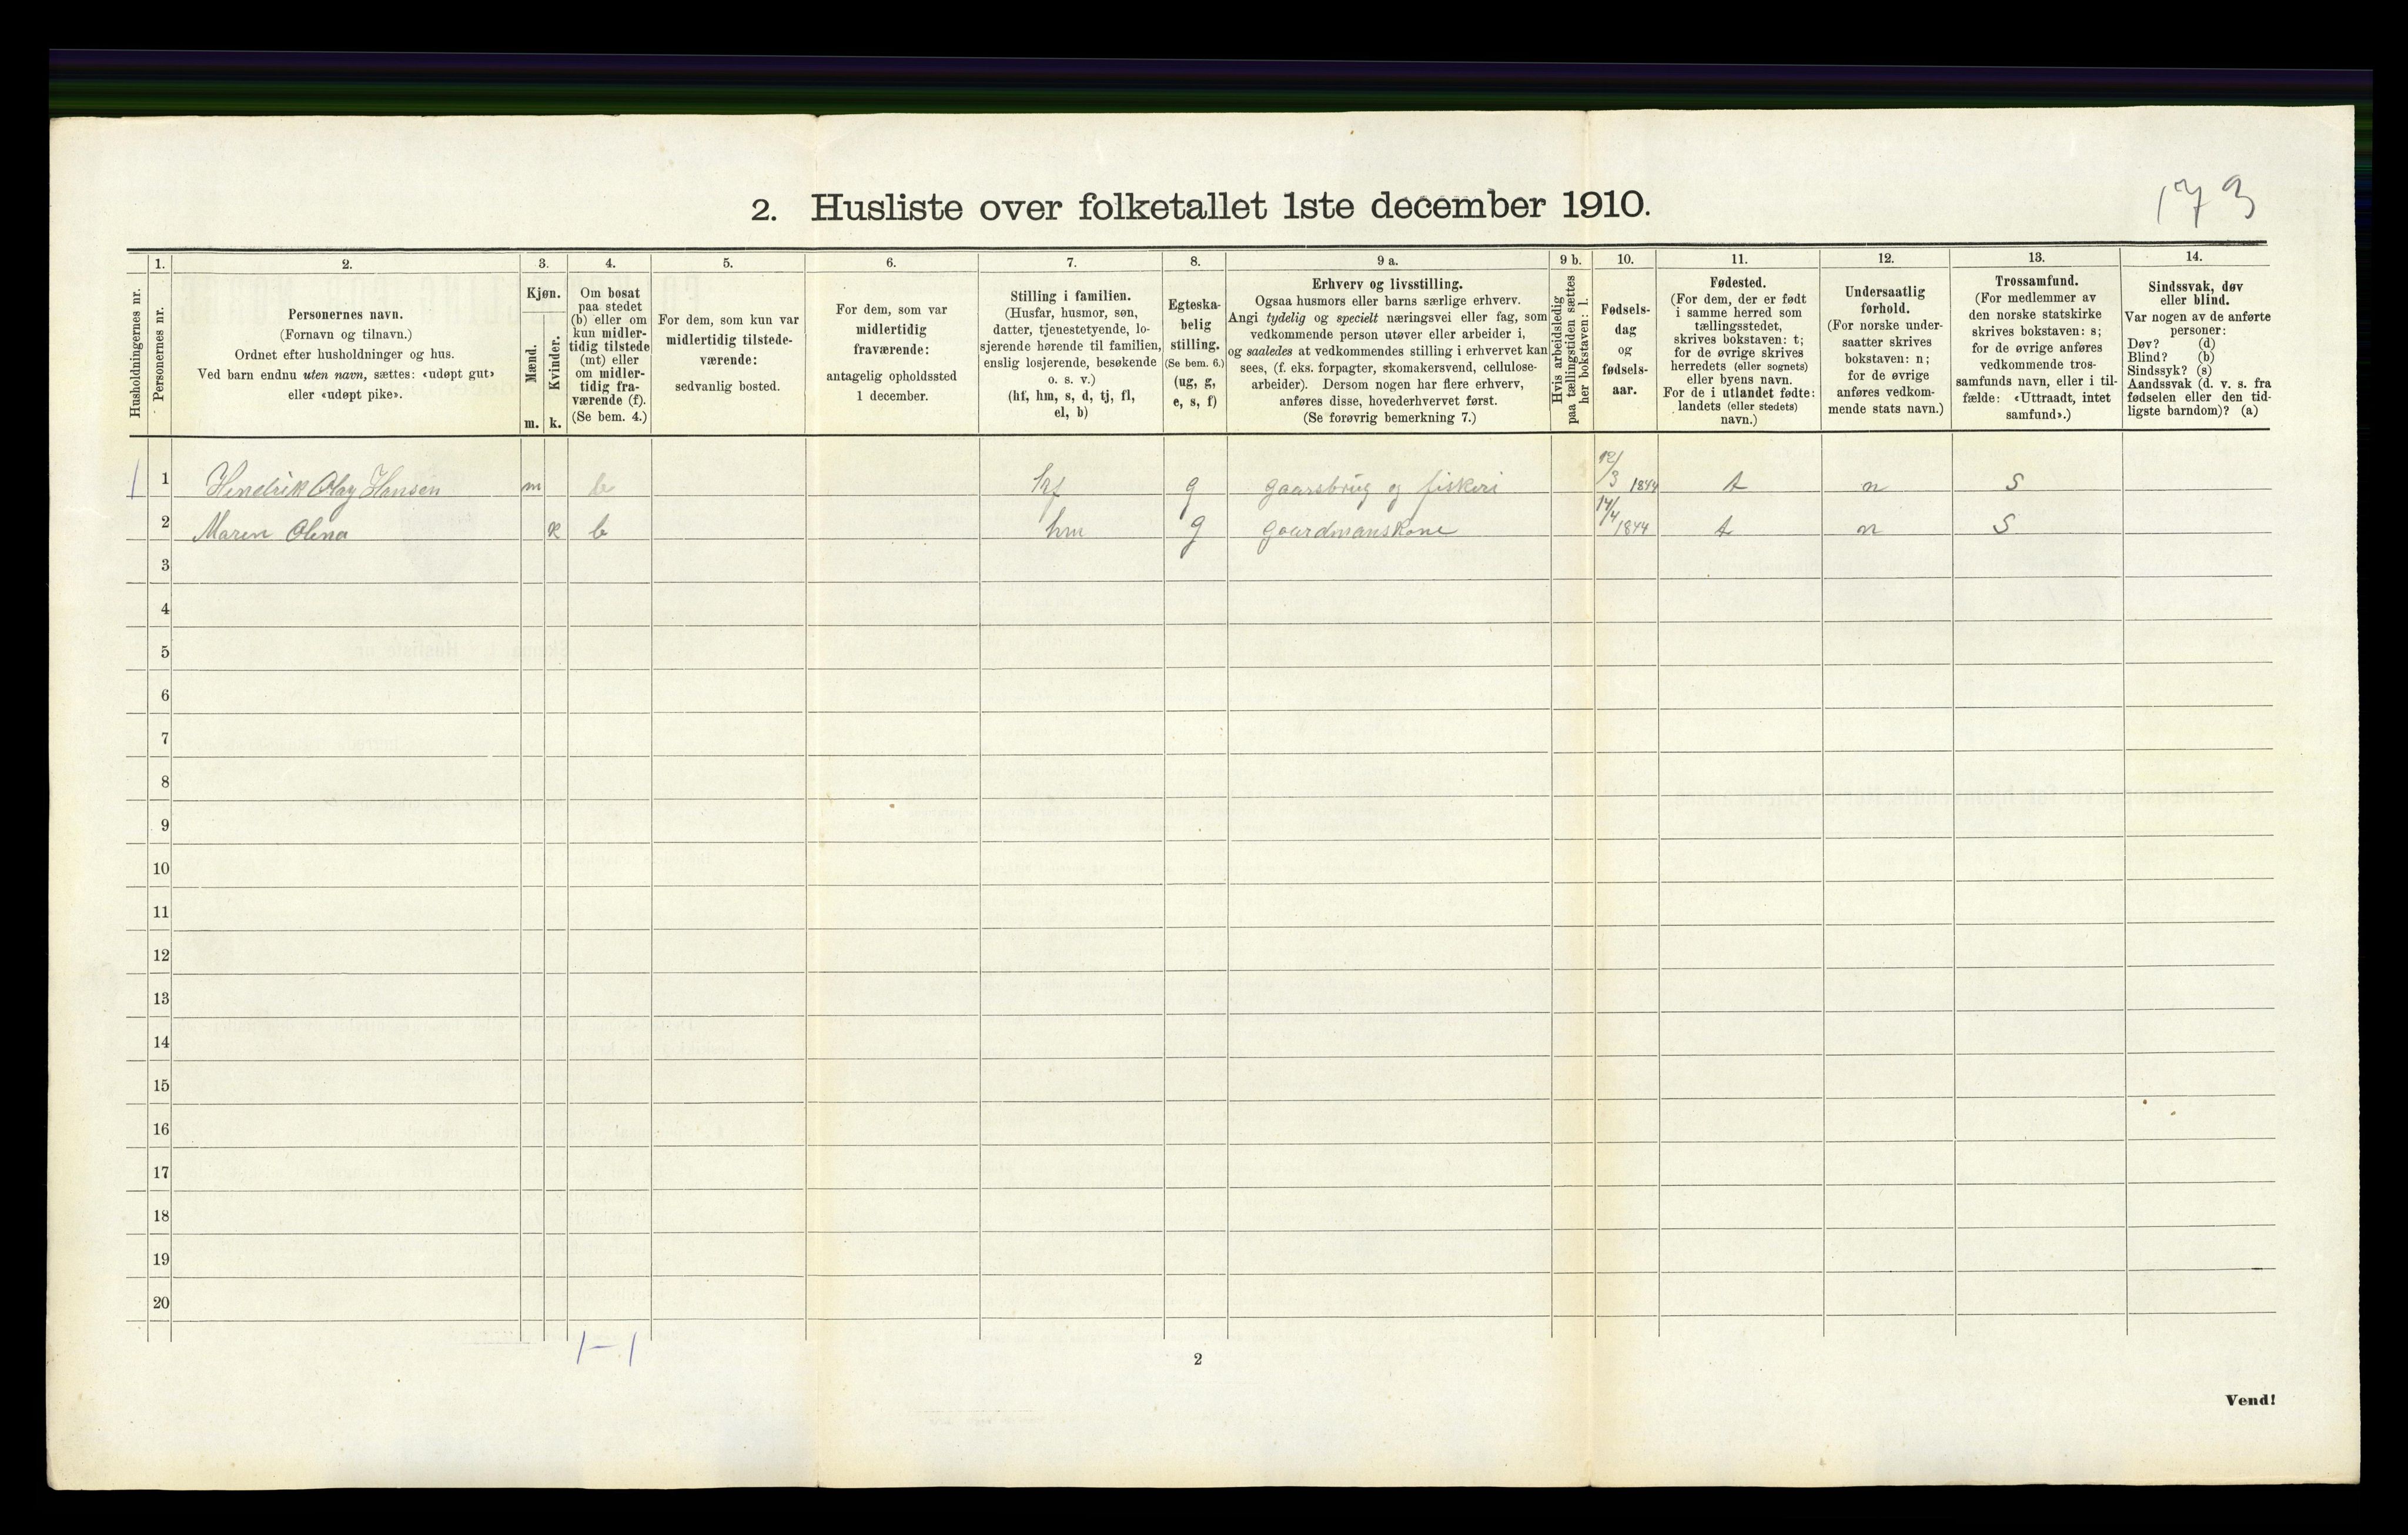 173
2. Husliste over folketallet 1ste december 1910.
Husholdningernes nr.
1.
Personernes nr.
2.
Personernes navn.
(Fornavn og tilnavn.)
Ordnet efter husholdninger og hus.
Ved barn endnu uten navn, sættes: «udøpt gut»
eller «udøpt pike».
3.
Kjøn.
Mænd.
m.
Kvinder.
k.
4.
Om bosat
paa stedet
(b) eller om
kun midler-
tidig tilstede
(mt) eller
om midler-
tidig fra-
værende (f).
(Se bem. 4.)
5.
For dem, som kun var
midlertidig tilstede-
værende:
sedvanlig bosted.
6.
For dem, som var
midlertidig
fraværende:
antagelig opholdssted
1 december.
7.
Stilling i familien.
(Husfar, husmor, søn,
datter, tjenestetyende, lo-
sjerende hørende til familien,
enslig losjerende, besøkende
o. s. v.)
(hf, hm, s, d, tj, fl,
el, b)
8.
Egteska-
belig
stilling.
(Se bem. 6.)
(ug, g,
e, s, f)
9 a.
Erhverv og livsstilling.
Ogsaa husmors eller barns særlige erhverv.
Angi tydelig og specielt næringsvei eller fag, som
vedkommende person utøver eller arbeider i,
og saaledes at vedkommendes stilling i erhvervet kan
sees, (f. eks. forpagter, skomakersvend, cellulose-
arbeider). Dersom nogen har flere erhverv,
anføres disse, hovederhvervet først.
(Se forøvrig bemerkning 7.)
9 b.
Hvis arbeidsledig
paa tællingstiden sættes
her bokstaven: l.
10.
Fødsels-
dag
og
fødsels-
aar.
11.
Fødested.
(For dem, der er født
i samme herred som
tællingsstedet,
skrives bokstaven: t;
for de øvrige skrives
herredets (eller sognets)
eller byens navn.
For de i utlandet fødte:
landets (eller stedets)
navn.)
12.
Undersaatlig
forhold.
(For norske under-
saatter skrives
bokstaven: n;
for de øvrige
anføres vedkom-
mende stats navn.)
13.
Trossamfund.
(For medlemmer av
den norske statskirke
skrives bokstaven: s;
for de øvrige anføres
vedkommende tros-
samfunds navn, eller i til-
fælde: «Uttraadt, intet
samfund».)
14.
Sindssvak, døv
eller blind.
Var nogen av de anførte
personer:
Døv? (d)
Blind? (b)
Sindssyk? (s)
Aandssvak (d. v. s. fra
fødselen eller den tid-
ligste barndom)? (a)
1 1 Hendrik Olag Hansen m b hf g gaarsbrug og fiskeri 12/3 1844 t n S
2 Maren Olena k b hm g gaardmanskone 14/4 1844 t n S
3
4
5
6
7
8
9
10
11
12
13
14
15
16
17
18
19
20
1-1
2
Vend!